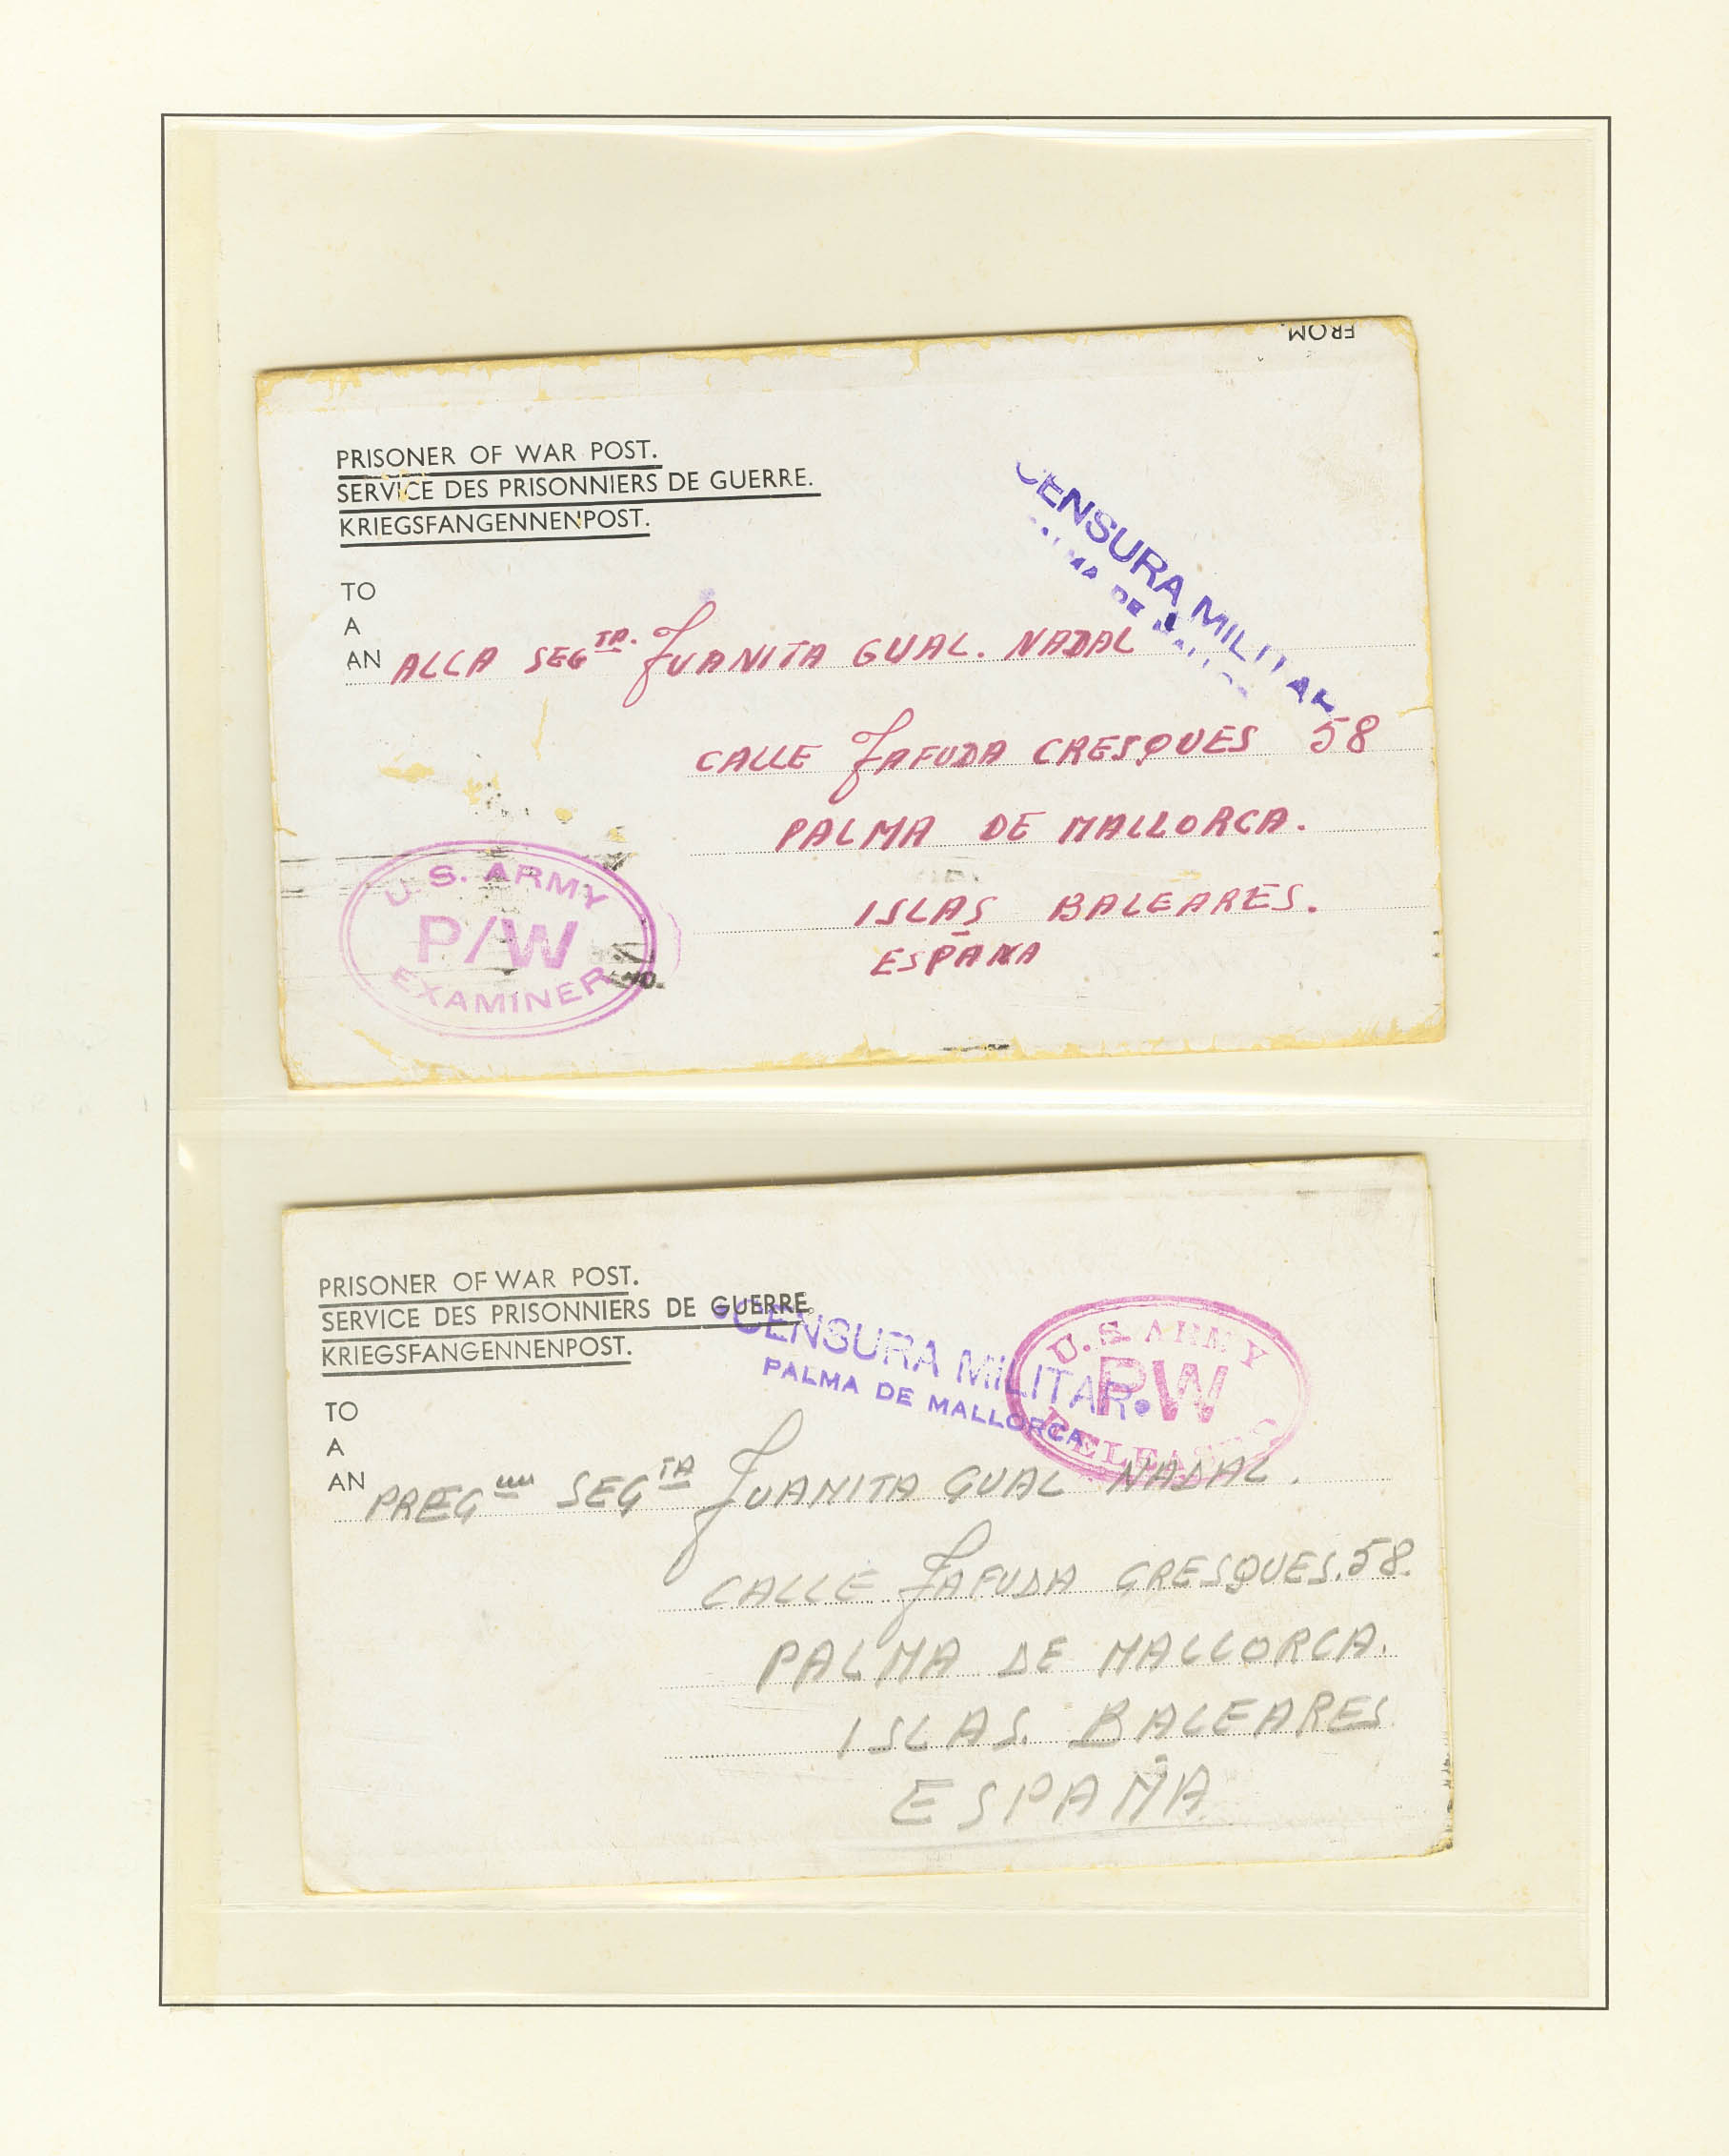 FROM.
PRISONER OF WAR POST.
SERVICE DES PRISONNIERS DE GUERRE.
KRIEGSFANGENNENPOST.
CENSURA MILITAR
DE
TO
A
AN ALLA SEG^TA. JUANITA GUAL. NADAL
CALLE JAFUDA CRESQUES 58
PALMA DE MALLORCA.
ISLAS BALEARES.
ESPAÑA
U.S. ARMY
P/W
EXAMINER
NO.
PRISONER OF WAR POST.
SERVICE DES PRISONNIERS DE GUERRE.
KRIEGSFANGENNENPOST.
•CENSURA MILITAR•
PALMA DE MALLORCA
U.S. ARMY
P.W
RELEASED
TO
A
AN PREG SEG^TA JUANITA GUAL NADAL.
CALLE JAFUDA CRESQUES.58.
PALMA DE MALLORCA.
ISLAS. BALEARES
ESPAÑA